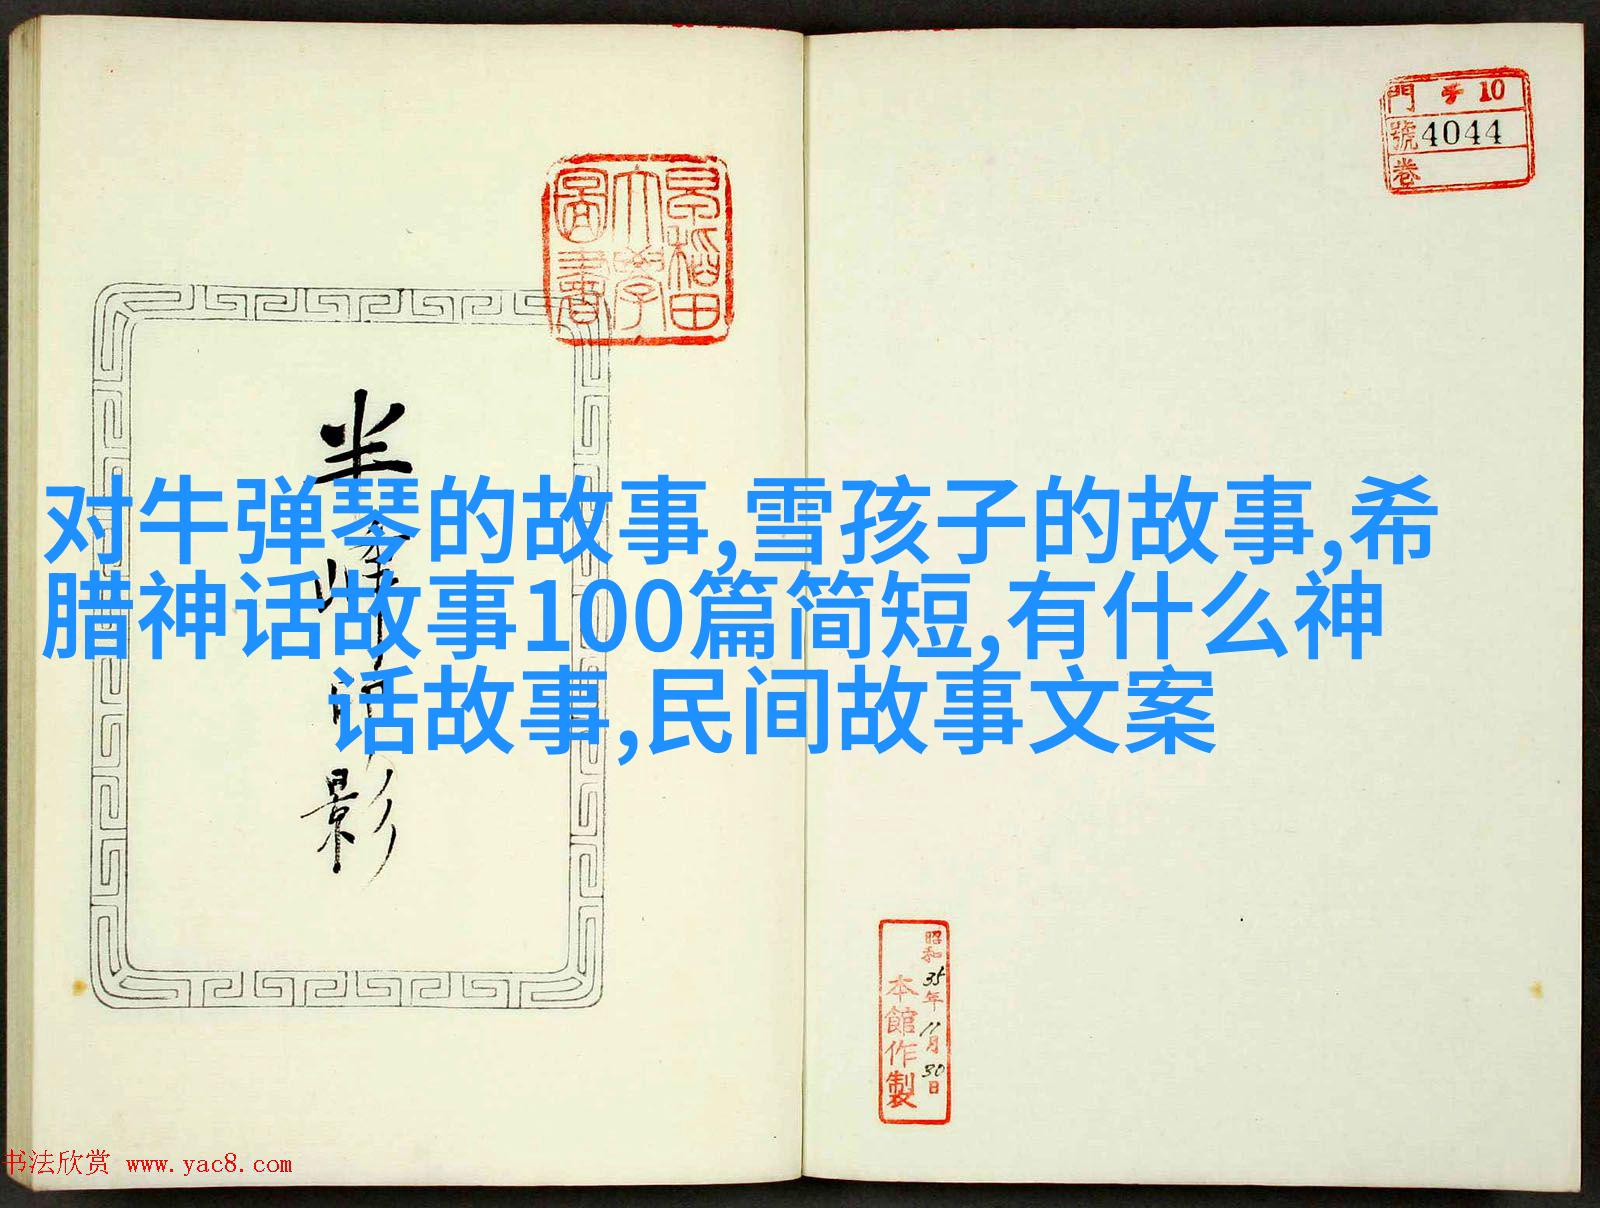 門 チ 10
號 4044
卷
早稲田
大學
圖書
半
峰
影
对牛弹琴的故事,雪孩子的故事,希
腊神话故事100篇简短,有什么神
话故事,民间故事文案
昭和35年11月30日
本館作製
书法欣赏 www.yac8.com